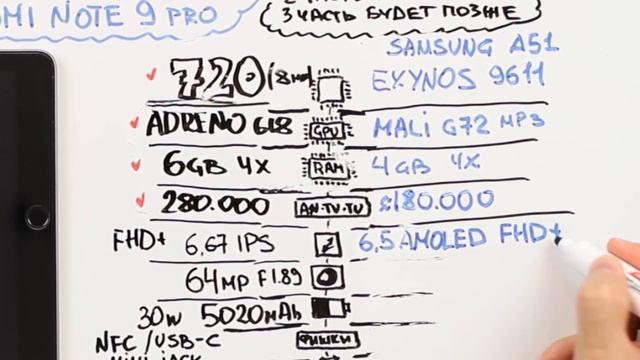 OMI NOTE 9 PRO
3 ЧАСТЬ БУДЕТ ПОЗЖЕ
SAMSUNG A51
720 EXYNOS 9611
ADRENO 618 GPU MALI G72 MP3
6GB 4X RAM 4GB 4X
280.000 AN-TU-TU ≈180.000
FHD+ 6,67 IPS 6,5 AMOLED FHD+
64MP F1.89
30W 5020MAh
NFC / USB-C ФИШКИ
MINI JACK